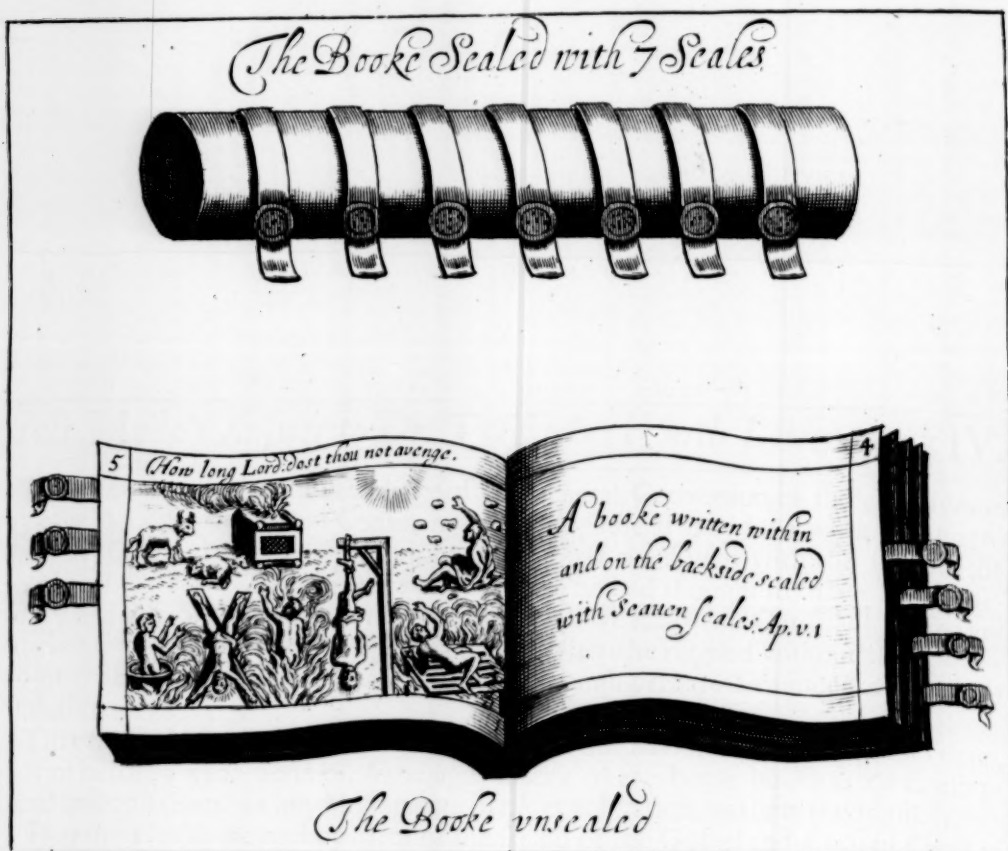 The Booke Sealed with 7 Seales
5
How long Lord dost thou not avenge.
4
A booke written within
and on the backside sealed
with Seauen seales. Ap. v. 1
The Booke vnsealed